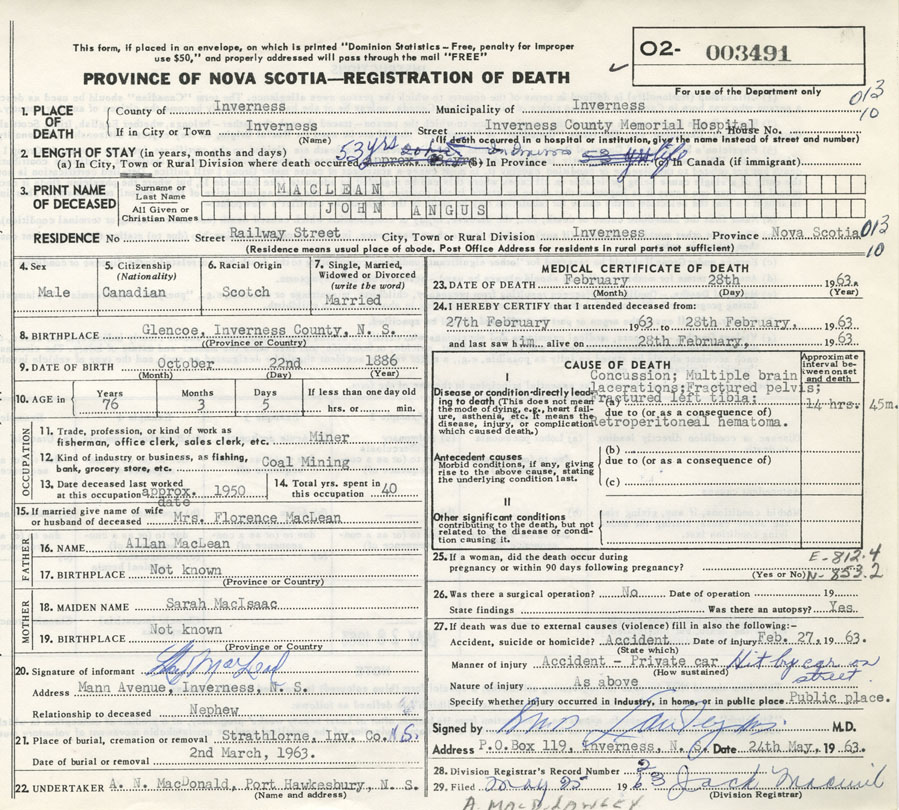 This form, if placed in an envelope, on which is printed "Dominion Statistics – Free, penalty for improper
use $50," and properly addressed will pass through the mail "FREE"
PROVINCE OF NOVA SCOTIA—REGISTRATION OF DEATH
O2- 003491
For use of the Department only
013
10
1. PLACE OF DEATH
County of Inverness Municipality of Inverness
If in City or Town Inverness Street Inverness County Memorial Hospital House No.
(Name) (If death occurred in a hospital or institution, give the name instead of street and number)
2. LENGTH OF STAY (in years, months and days)
(a) In City, Town or Rural Division where death occurred 53 yrs (b) In Province life (c) In Canada (if immigrant)
3. PRINT NAME OF DECEASED
Surname or Last Name MACLEAN
All Given or Christian Names JOHN ANGUS
RESIDENCE No Street Railway Street City, Town or Rural Division Inverness Province Nova Scotia 013
(Residence means usual place of abode. Post Office Address for residents in rural parts not sufficient) 10
4. Sex Male
5. Citizenship (Nationality) Canadian
6. Racial Origin Scotch
7. Single, Married, Widowed or Divorced (write the word) Married
8. BIRTHPLACE Glencoe, Inverness County, N. S.
(Province or Country)
9. DATE OF BIRTH October 22nd 1886
(Month) (Day) (Year)
10. AGE in Years Months Days If less than one day old
76 3 5 hrs. or min.
OCCUPATION
11. Trade, profession, or kind of work as
fisherman, office clerk, sales clerk, etc. Miner
12. Kind of industry or business, as fishing,
bank, grocery store, etc. Coal Mining
13. Date deceased last worked
at this occupation approx. 1950
date
14. Total yrs. spent in
this occupation 40
15. If married give name of wife
or husband of deceased Mrs. Florence MacLean
FATHER
16. NAME Allan MacLean
17. BIRTHPLACE Not known
(Province or Country)
MOTHER
18. MAIDEN NAME Sarah MacIsaac
19. BIRTHPLACE Not known
(Province or Country)
20. Signature of informant
Address Mann Avenue, Inverness, N. S.
Relationship to deceased Nephew
21. Place of burial, cremation or removal Strathlorne, Inv. Co. N.S.
Date of burial or removal 2nd March, 1963.
22. UNDERTAKER A. N. MacDonald, Port Hawkesbury, N. S.
(Name and address)
MEDICAL CERTIFICATE OF DEATH
23. DATE OF DEATH February 28th 1963.
(Month) (Day) (Year)
24. I HEREBY CERTIFY that I attended deceased from:
27th February 1963 to 28th February, 1963
and last saw him alive on 28th February, 1963
CAUSE OF DEATH
Approximate interval between onset and death
I
Disease or condition directly leading to death (This does not mean the mode of dying, e.g., heart failure, asthenia, etc. It means the disease, injury, or complication which caused death.)
(a) Concussion; Multiple brain
lacerations; Fractured pelvis;
Fractured left tibia; 14 hrs. 45m.
due to (or as a consequence of)
Retroperitoneal hematoma.
Antecedent causes
Morbid conditions, if any, giving rise to the above cause, stating the underlying condition last.
(b)
due to (or as a consequence of)
(c)
II
Other significant conditions
contributing to the death, but not related to the disease or condition causing it.
25. If a woman, did the death occur during
pregnancy or within 90 days following pregnancy?
(Yes or No)
E-812.4
N-853.2
26. Was there a surgical operation? No Date of operation 19
State findings Was there an autopsy? Yes
27. If death was due to external causes (violence) fill in also the following:–
Accident, suicide or homicide? Accident Date of injury Feb. 27, 1963.
(State which)
Manner of injury Accident - Private car Hit by car on street.
(How sustained)
Nature of injury As above
Specify whether injury occurred in industry, in home, or in public place Public place.
Signed by M.D.
Address P.O.Box 119, Inverness, N. S. Date 24th May, 1963.
28. Division Registrar's Record Number 2
29. Filed May 25 1963 Jack MacNeil
(Division Registrar)